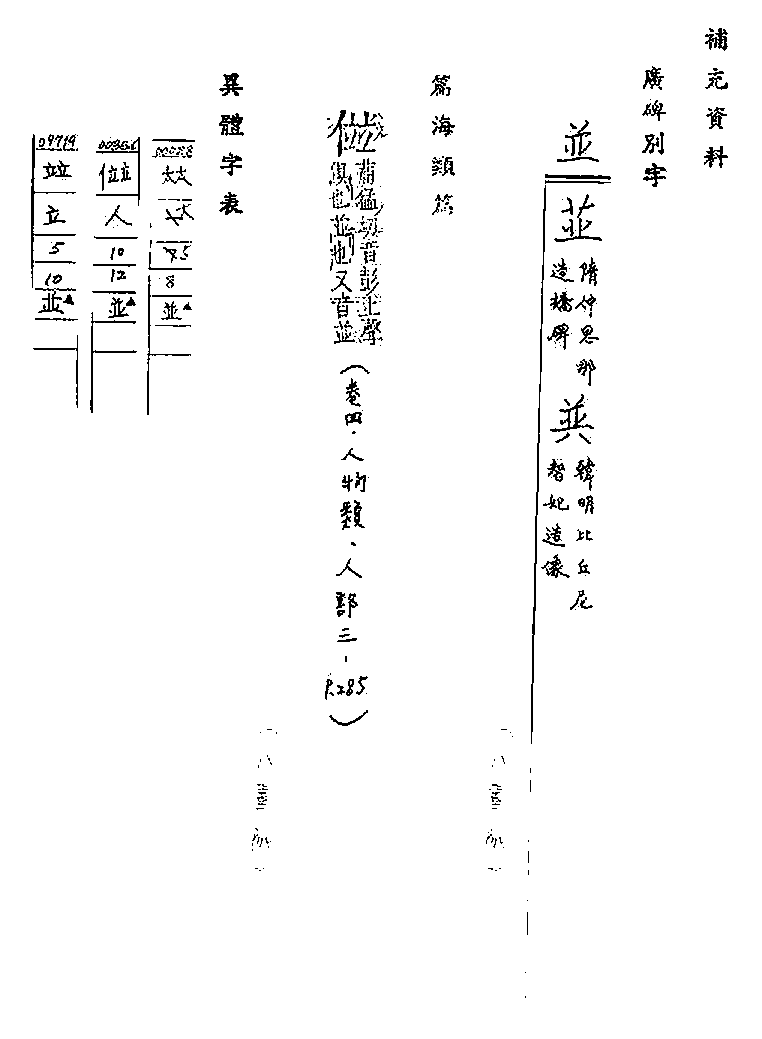 補充資料
廣碑別字
並
隋仲思那
造橋碑
韓明比丘尼
智妃造像
篇海類篇
蒲猛切音彭上聲
俱也並也又音並
(卷四、人物類、人部三、P.285)
異體字表
00088
8
並▲
人
10
12
並▲
04719
竝
立
5
10
並▲